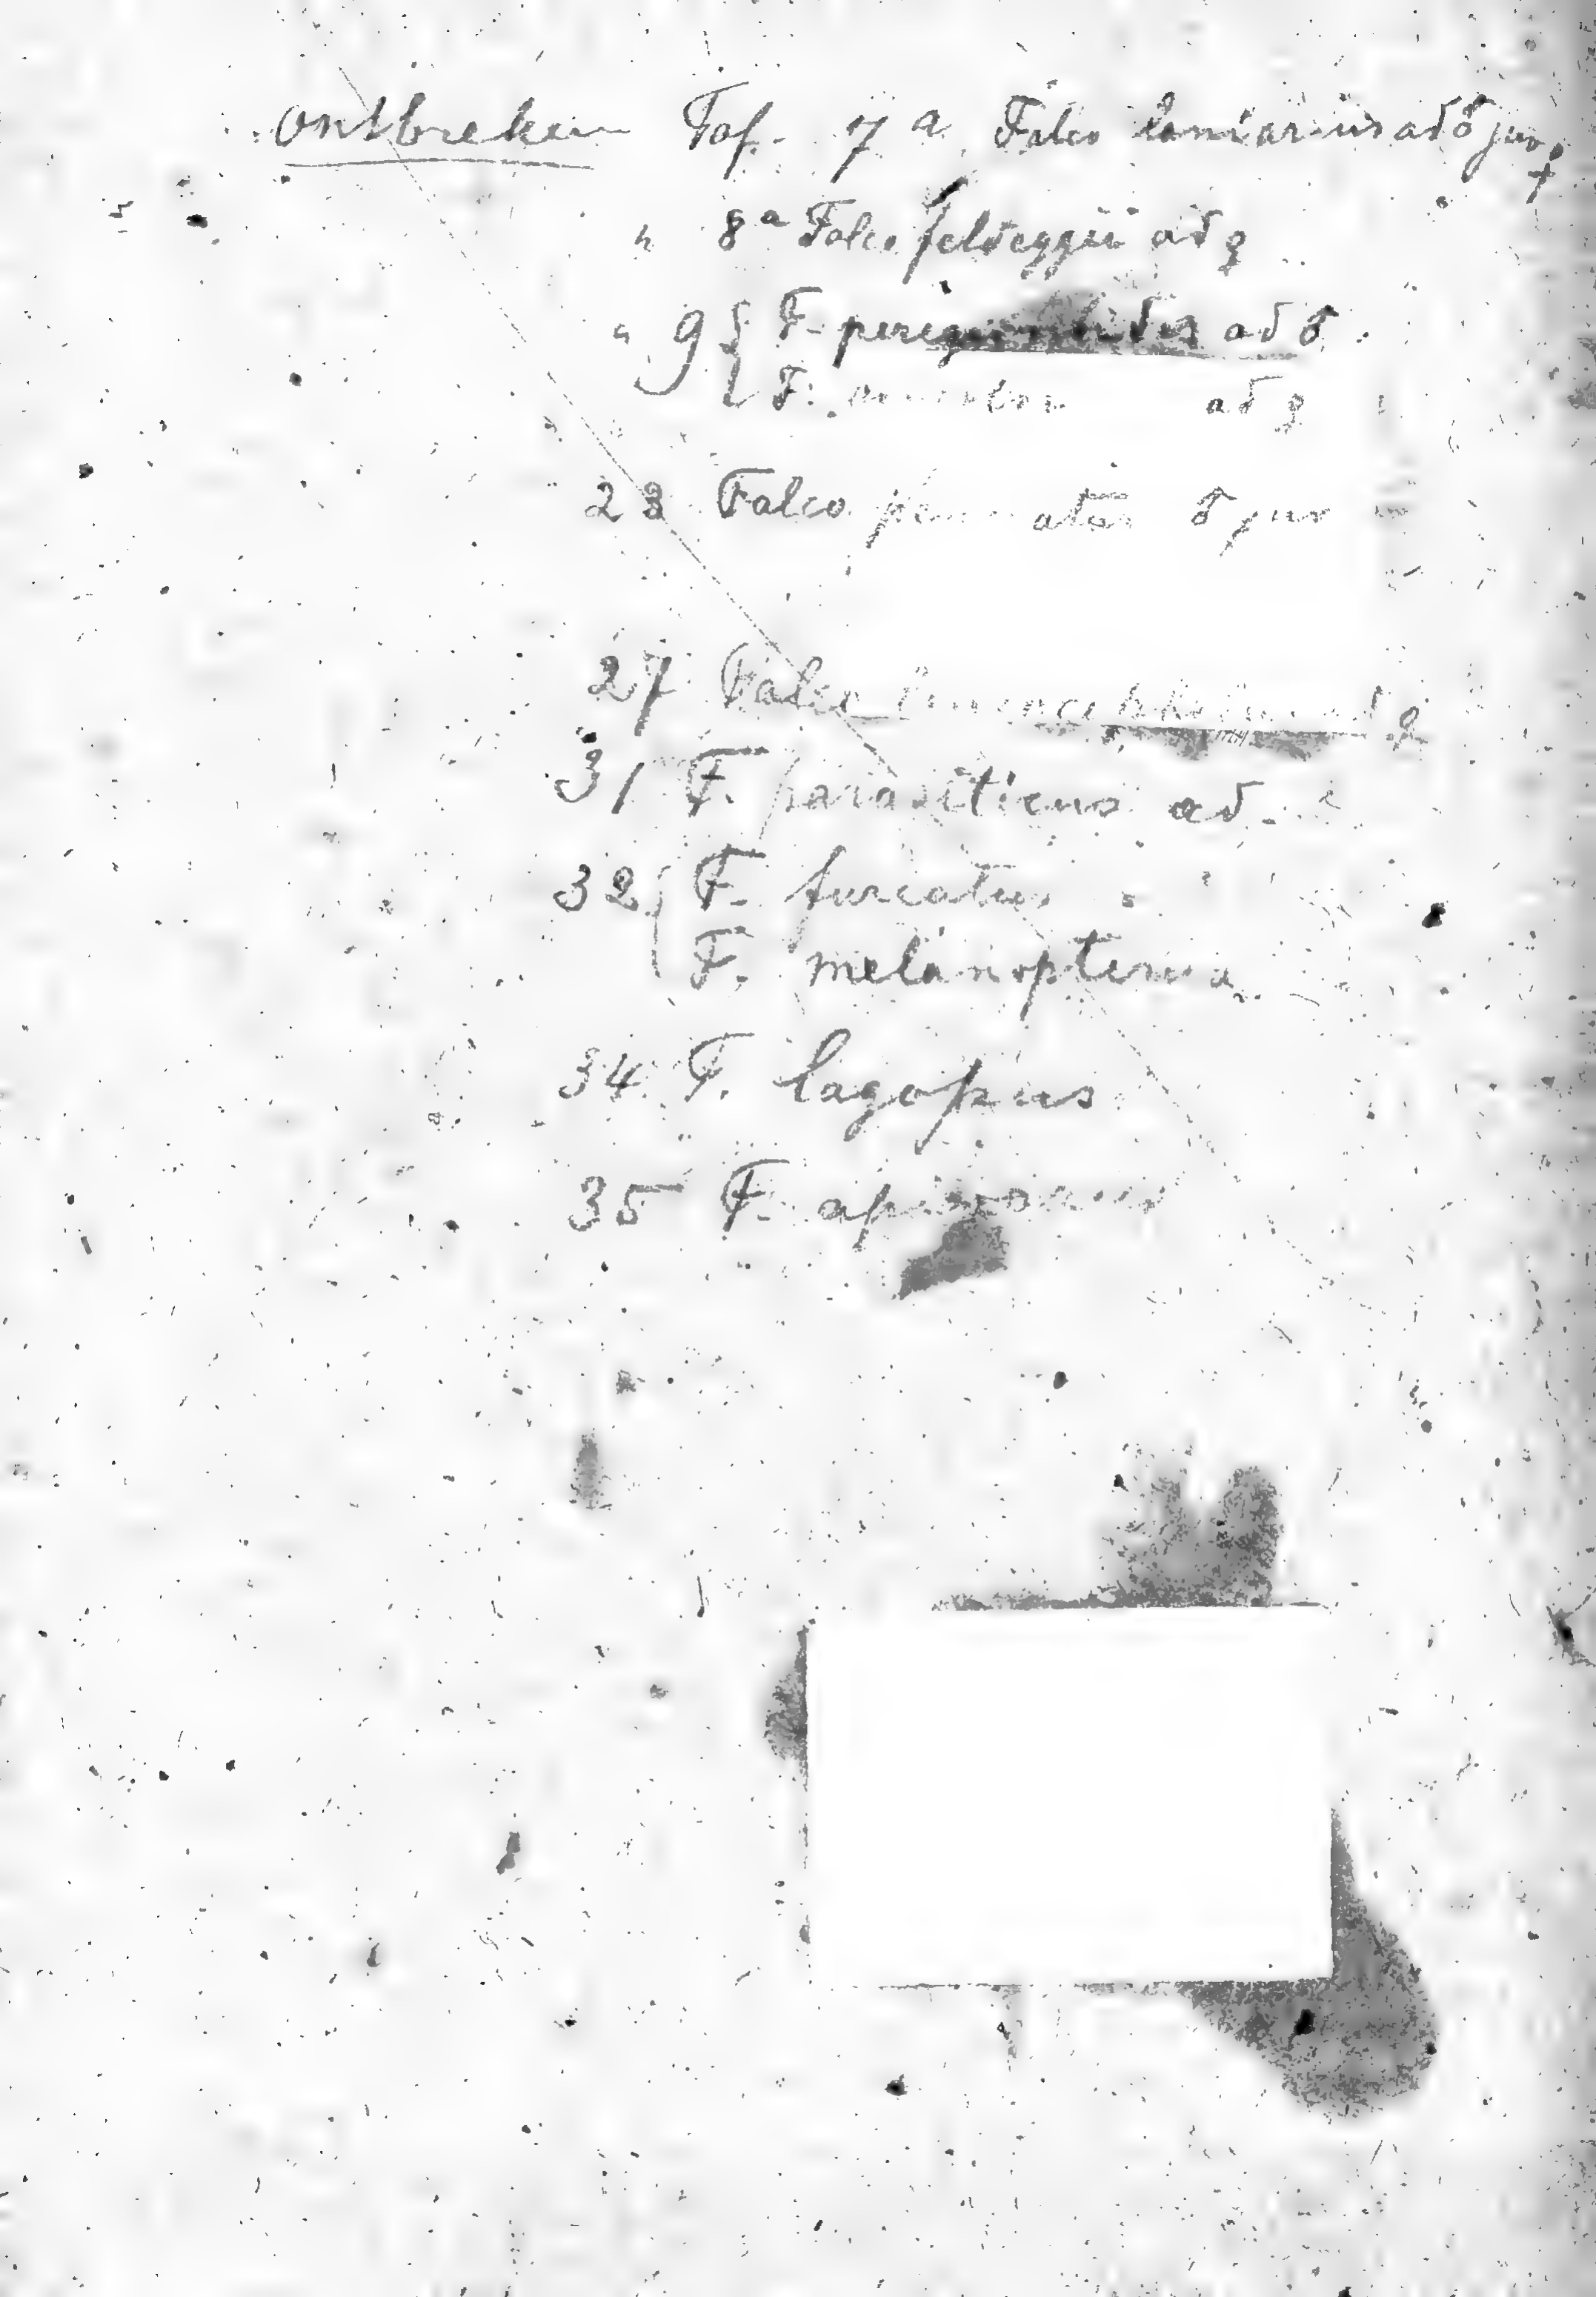 ontbreken Taf. 7 a. Falco laniarius ad ♂ juv.
" 8 a Falco feldeggii ad ♀
" 9 { F. ad ♂
F. ad ♀
23 Falco pennatus ♂ juv
27 Falco ad ♀
31 F. parasiticus ad.
32 { F. furcatus
F. melanopterus
34. F. lagopus
35 F. apivorus